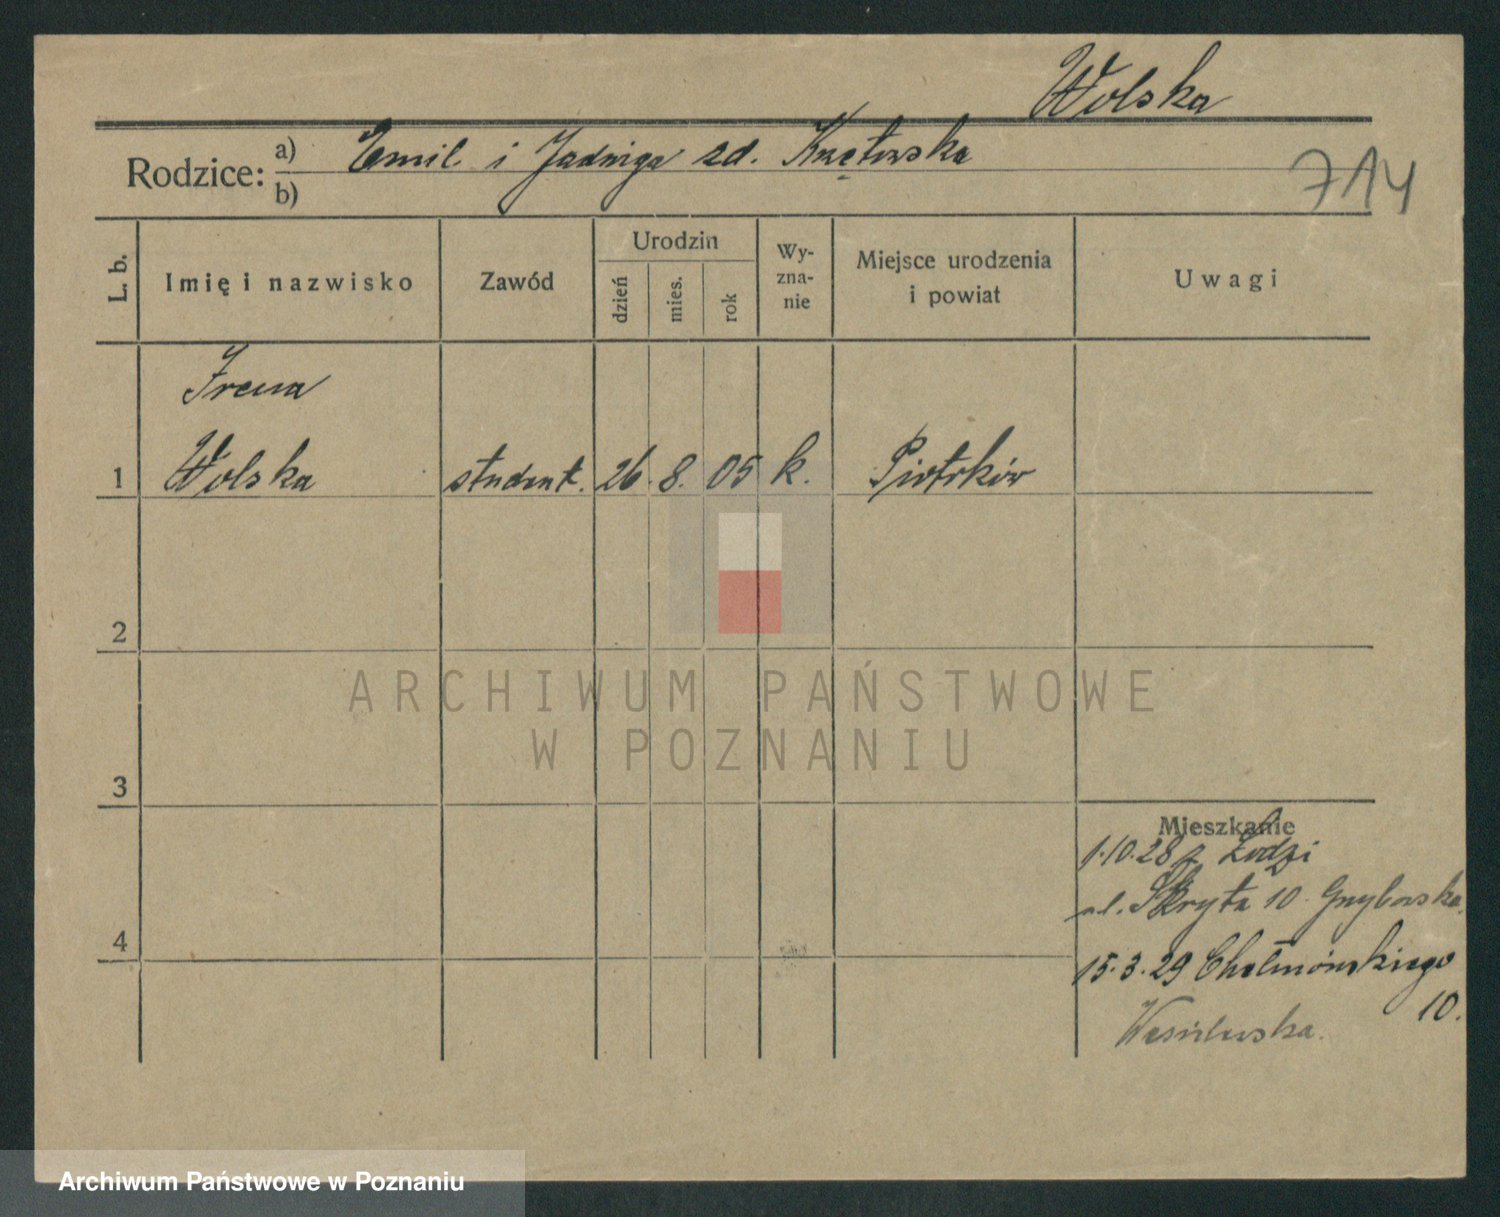 Wolska
Rodzice: a) Emil i Jadwiga zd.
b)
714
L. b.
Imię i nazwisko
Zawód
Urodzin
dzień
mies.
rok
Wy-
zna-
nie
Miejsce urodzenia
i powiat
Uwagi
Irena
1 Wolska student. 26. 8. 05 k. Piotrków
2
ARCHIWUM PAŃSTWOWE
W POZNANIU
3
Mieszkanie
1.10.28 z Łodzi
ul. Skryta 10
4
15.3.29 Chełmońskiego
10.
Archiwum Państwowe w Poznaniu